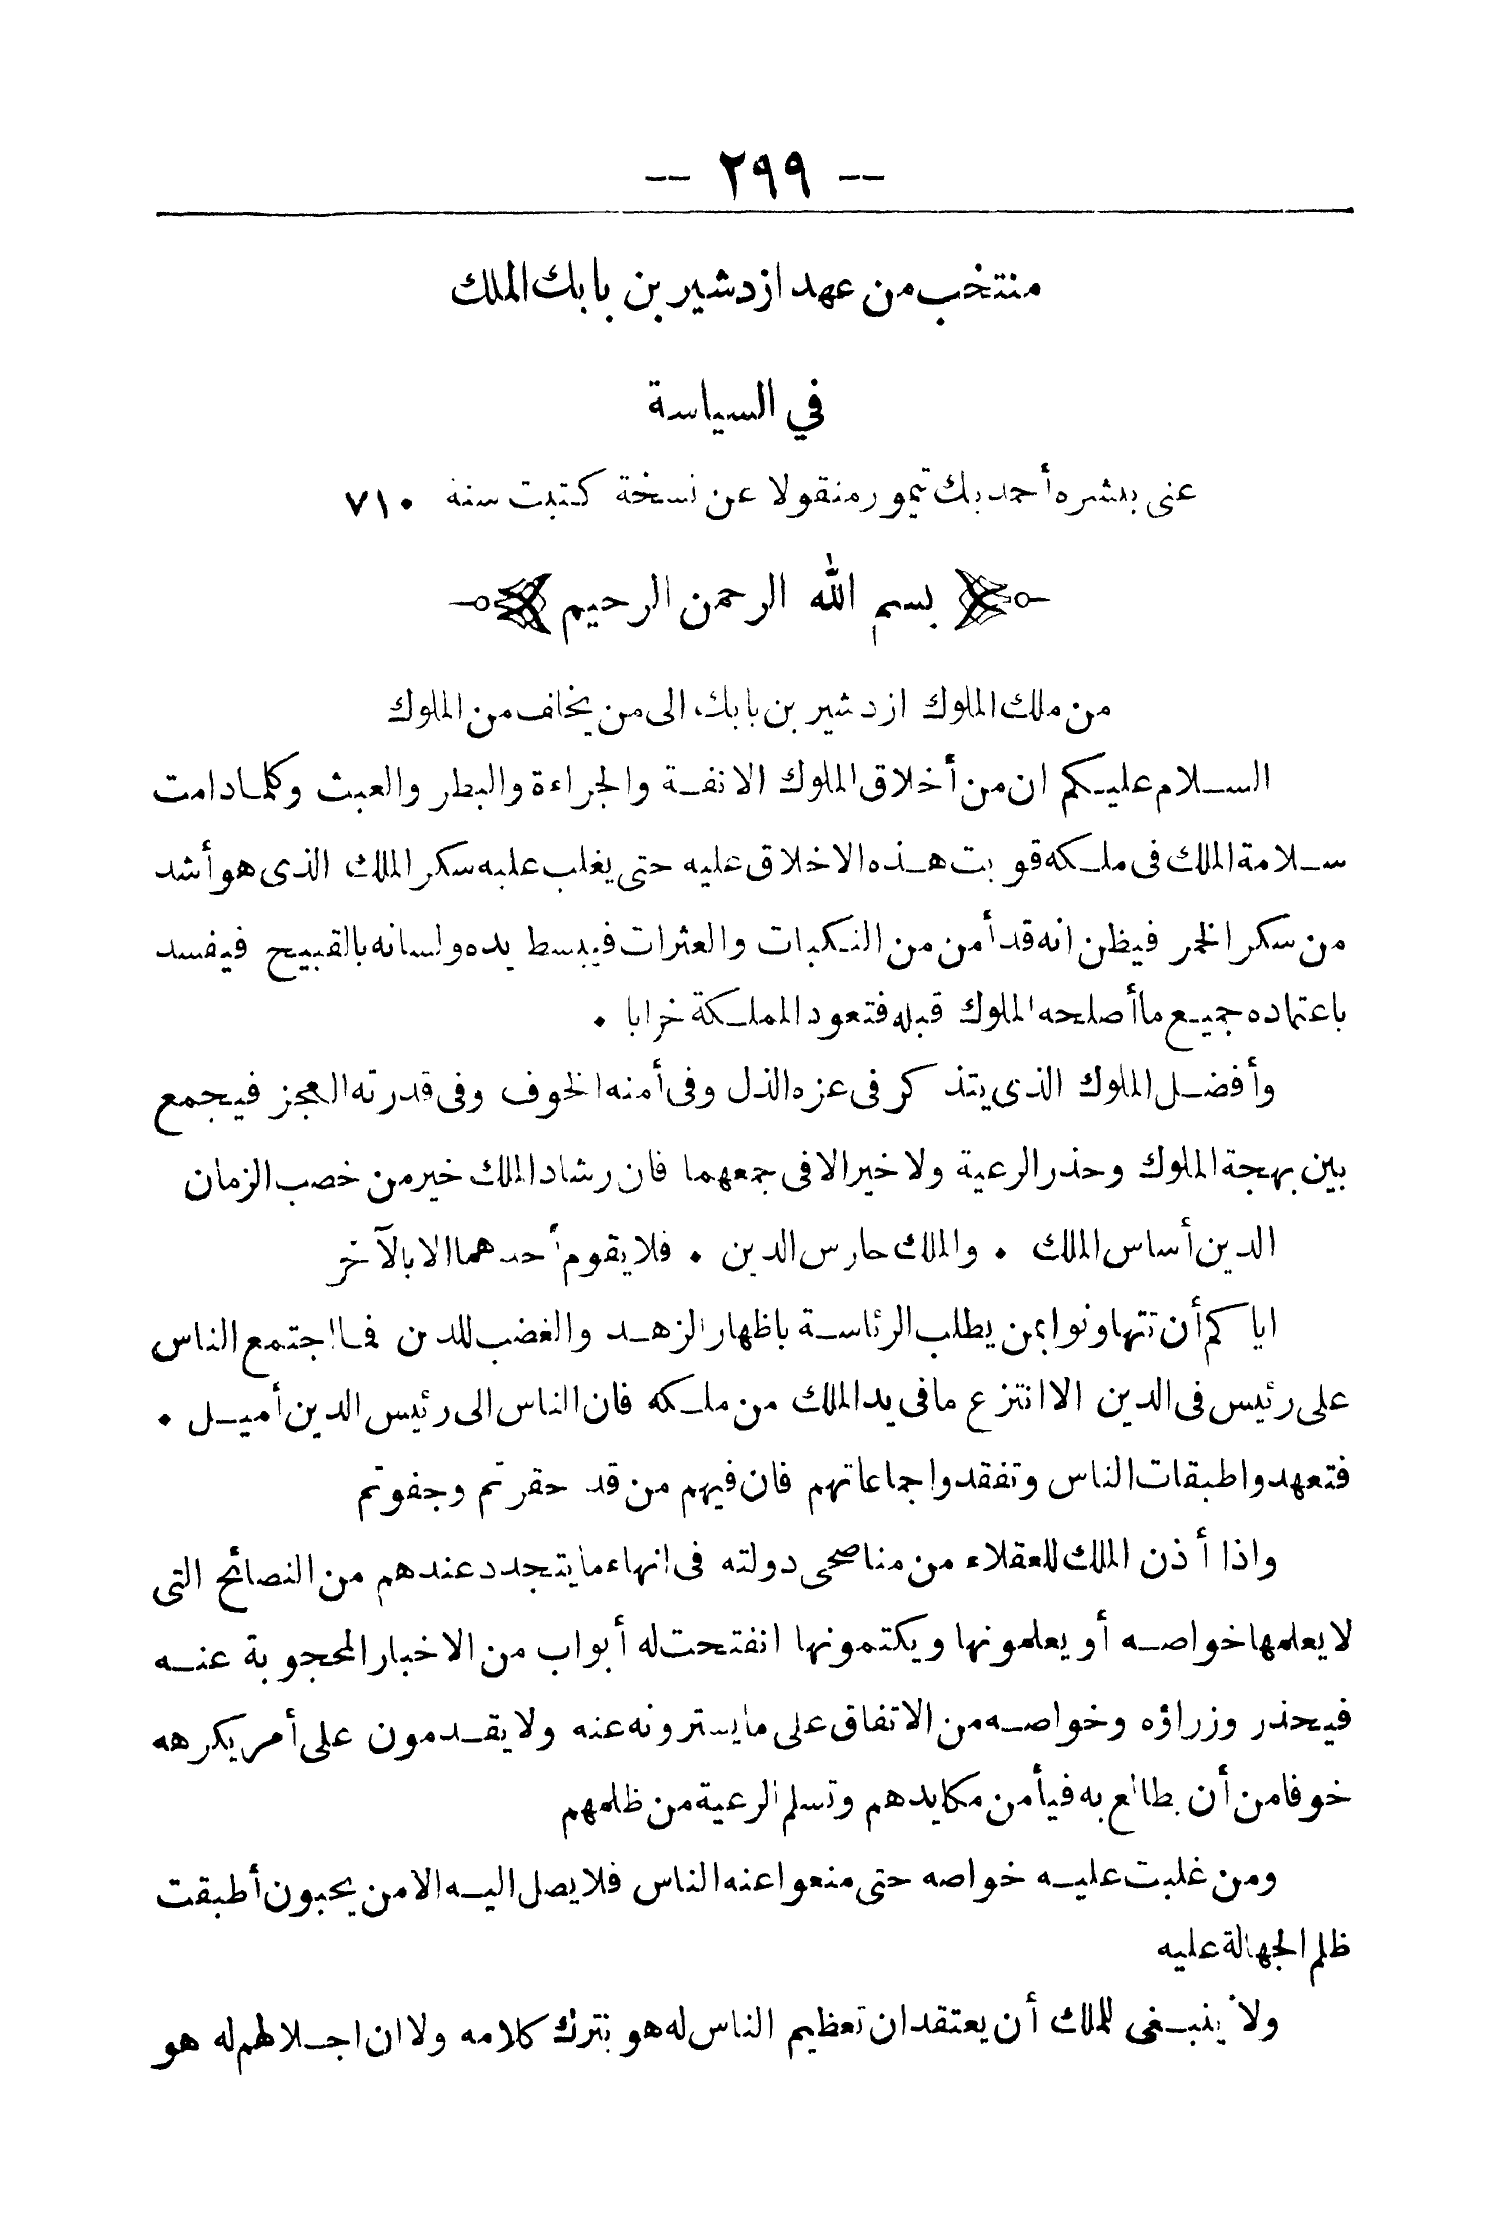 -- ٢٩٩ --
منتخب من عهد ازدشير بن بابك الملك
في السياسة
عنى بنشره أحمد بك تيمور منقولا عن نسخة كتبت سنة ٧١٠
بسم الله الرحمن الرحيم
من ملك الملوك ازدشير بن بابك، الى من يخلف من الملوك
السلام عليكم ان من أخلاق الملوك الانفة والجراءة والبطر والعبث وكلما دامت
سلامة الملك فى ملكه قويت هذه الاخلاق عليه حتى يغلب عليه سكر الملك الذى هو أشد
من سكر الخمر فيظن انه قد أمن من النكبات والعثرات فيبسط يده ولسانه بالقبيح فيفسد
باعتماده جميع ما أصلحه الملوك قبله فتعود المملكة خرابا .
وأفضل الملوك الذى يتذكر فى عزه الذل وفى أمنه الخوف وفى قدرته العجز فيجمع
بين بهجة الملوك وحذر الرعية ولا خير الا فى جمعهما فان رشاد الملك خير من خصب الزمان
الدين أساس الملك . والملك حارس الدين . فلا يقوم أحدهما الا بالآخر
اياكم أن تتهاونوا بمن يطلب الرئاسة باظهار الزهد والغضب للدين فما اجتمع الناس
على رئيس فى الدين الا انتزع ما فى يد الملك من ملكه فان الناس الى رئيس الدين أميل .
فتعهدوا طبقات الناس وتفقدوا جماعاتهم فان فيهم من قد حقرتم وجفوتم
واذا أذن الملك للعقلاء من مناصحى دولته فى انهاء ما يتجدد عندهم من النصائح التى
لا يعلمها خواصه أو يعلمونها ويكتمونها انفتحت له أبواب من الاخبار المحجوبة عنه
فيحذر وزراؤه وخواصه من الاتفاق على ما يسترونه عنه ولا يقدمون على أمر يكرهه
خوفا من أن يطالع به فيأمن مكايدهم وتسلم الرعية من ظلمهم
ومن غلبت عليه خواصه حتى منعوا عنه الناس فلا يصل اليه الا من يحبون أطبقت
ظلم الجهالة عليه
ولا ينبغى للملك أن يعتقد ان تعظيم الناس له هو بترك كلامه ولا ان اجلالهم له هو